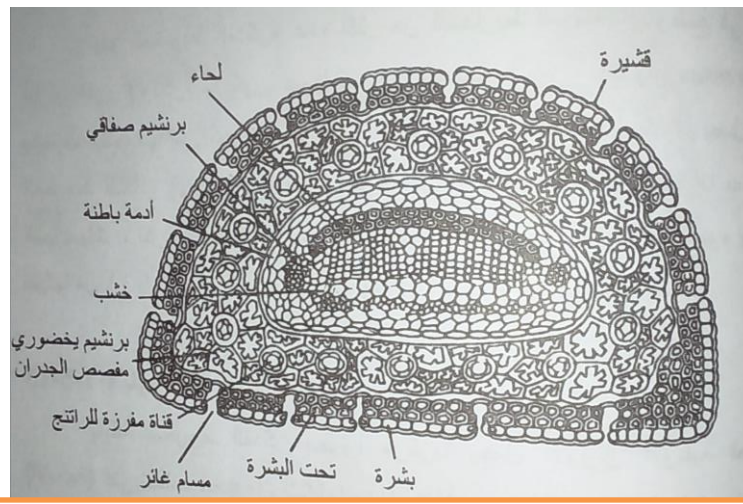 قشيرة
لحاء
برنشيم صفاقي
أدمة باطنة
خشب
برنشيم يخضوري
مفصص الجدران
قناة مفرزة للراتنج
مسام غائر
تحت البشرة
بشرة